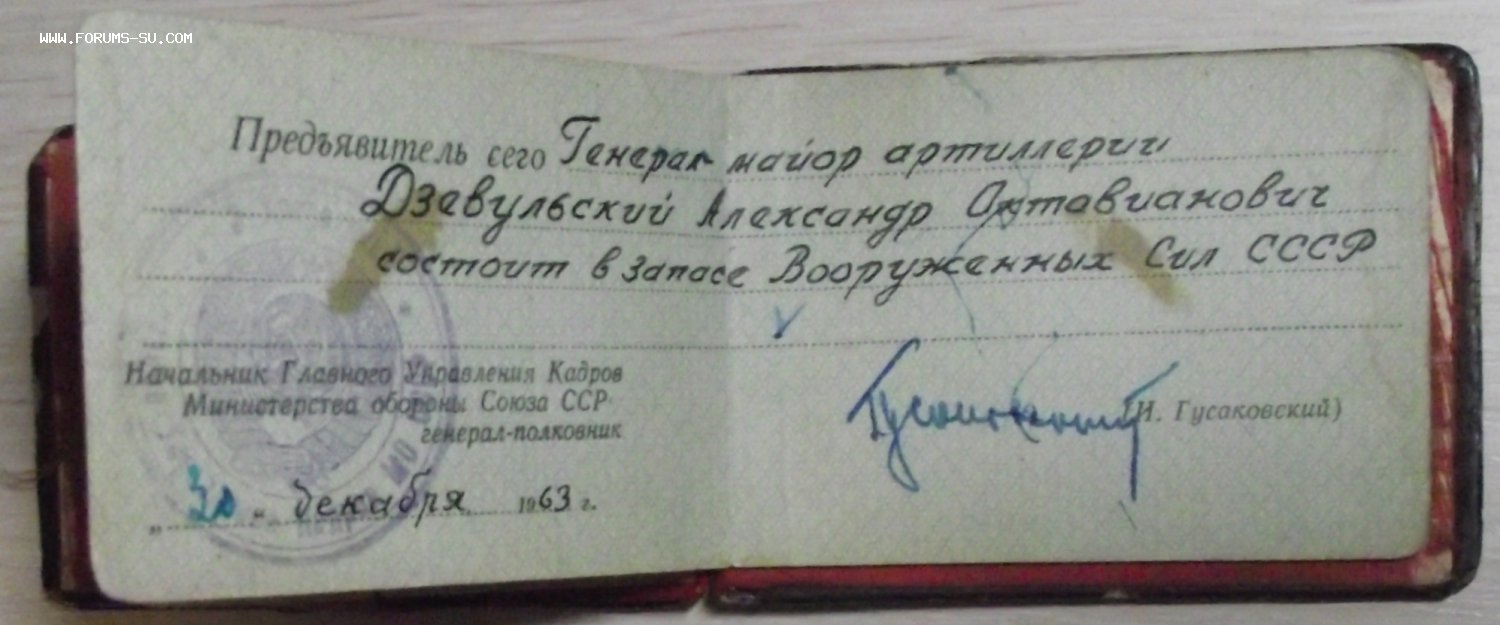 WWW.FORUMS-SU.COM
Предъявитель сего Генерал-майор артиллерии
Дзевульский Александр Октавианович
состоит в запасе Вооруженных Сил СССР
Начальник Главного Управления Кадров
Министерства обороны Союза ССР
генерал-полковник
(И. Гусаковский)
„30„ декабря 1963 г.
МО